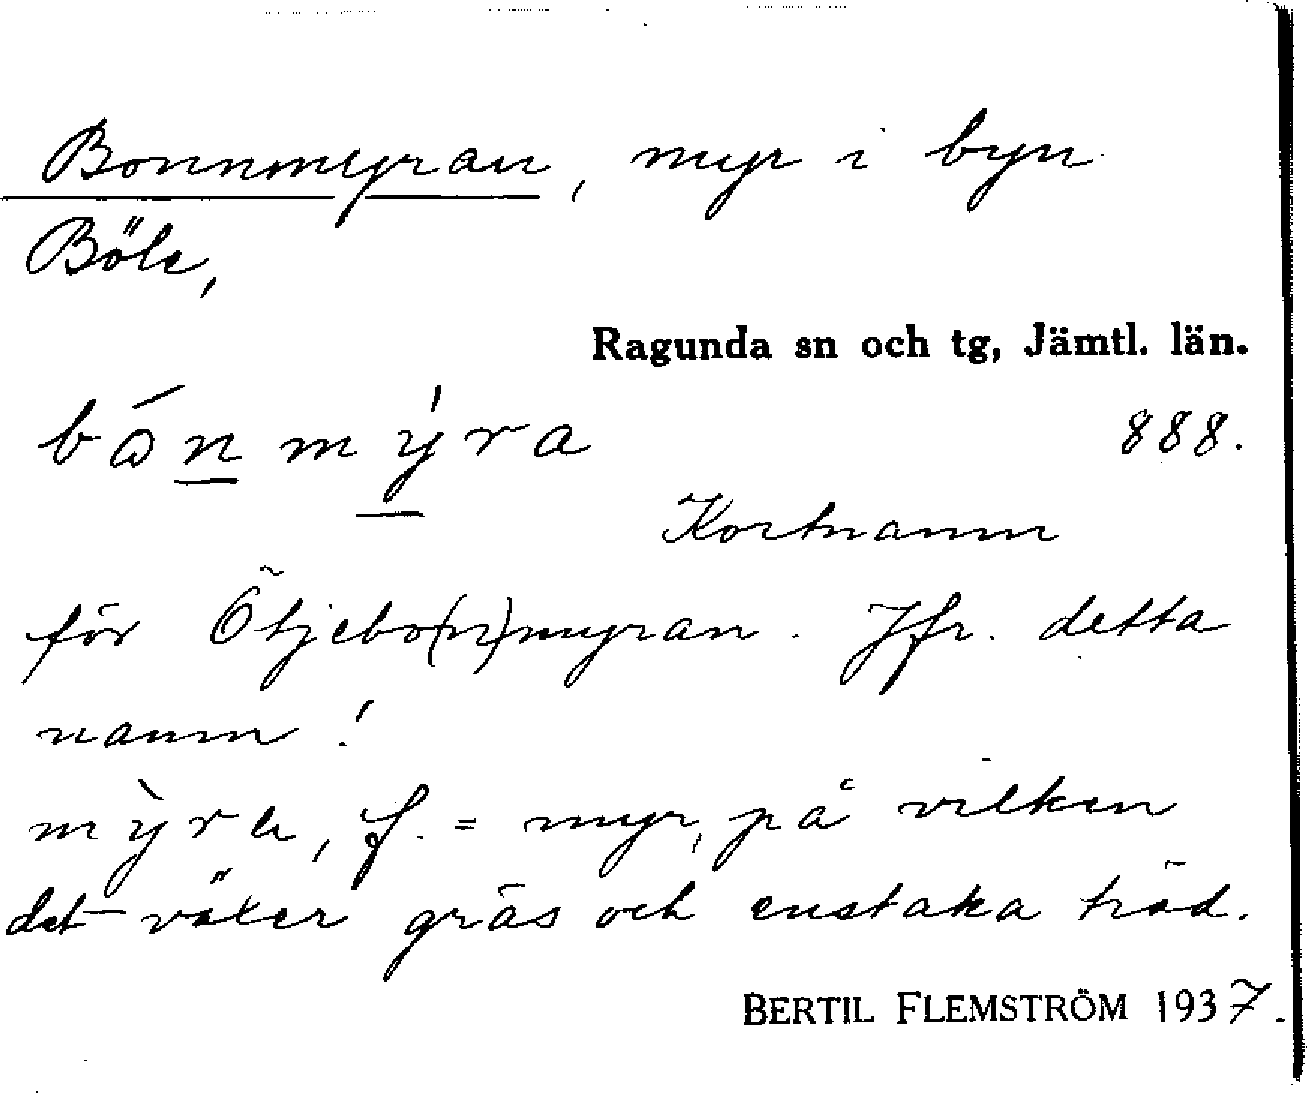 Bonnmyran, myr i byn
Böle,
Ragunda sn och tg, Jämtl. län.
bɷ́n mýra
888.
Kortnamn
för Öhjebo(n)myran. Jfr. detta
namn!
mỳra, f. = myr, på vilken
det växer gräs och enstaka träd.
BERTIL FLEMSTRÖM 1937.